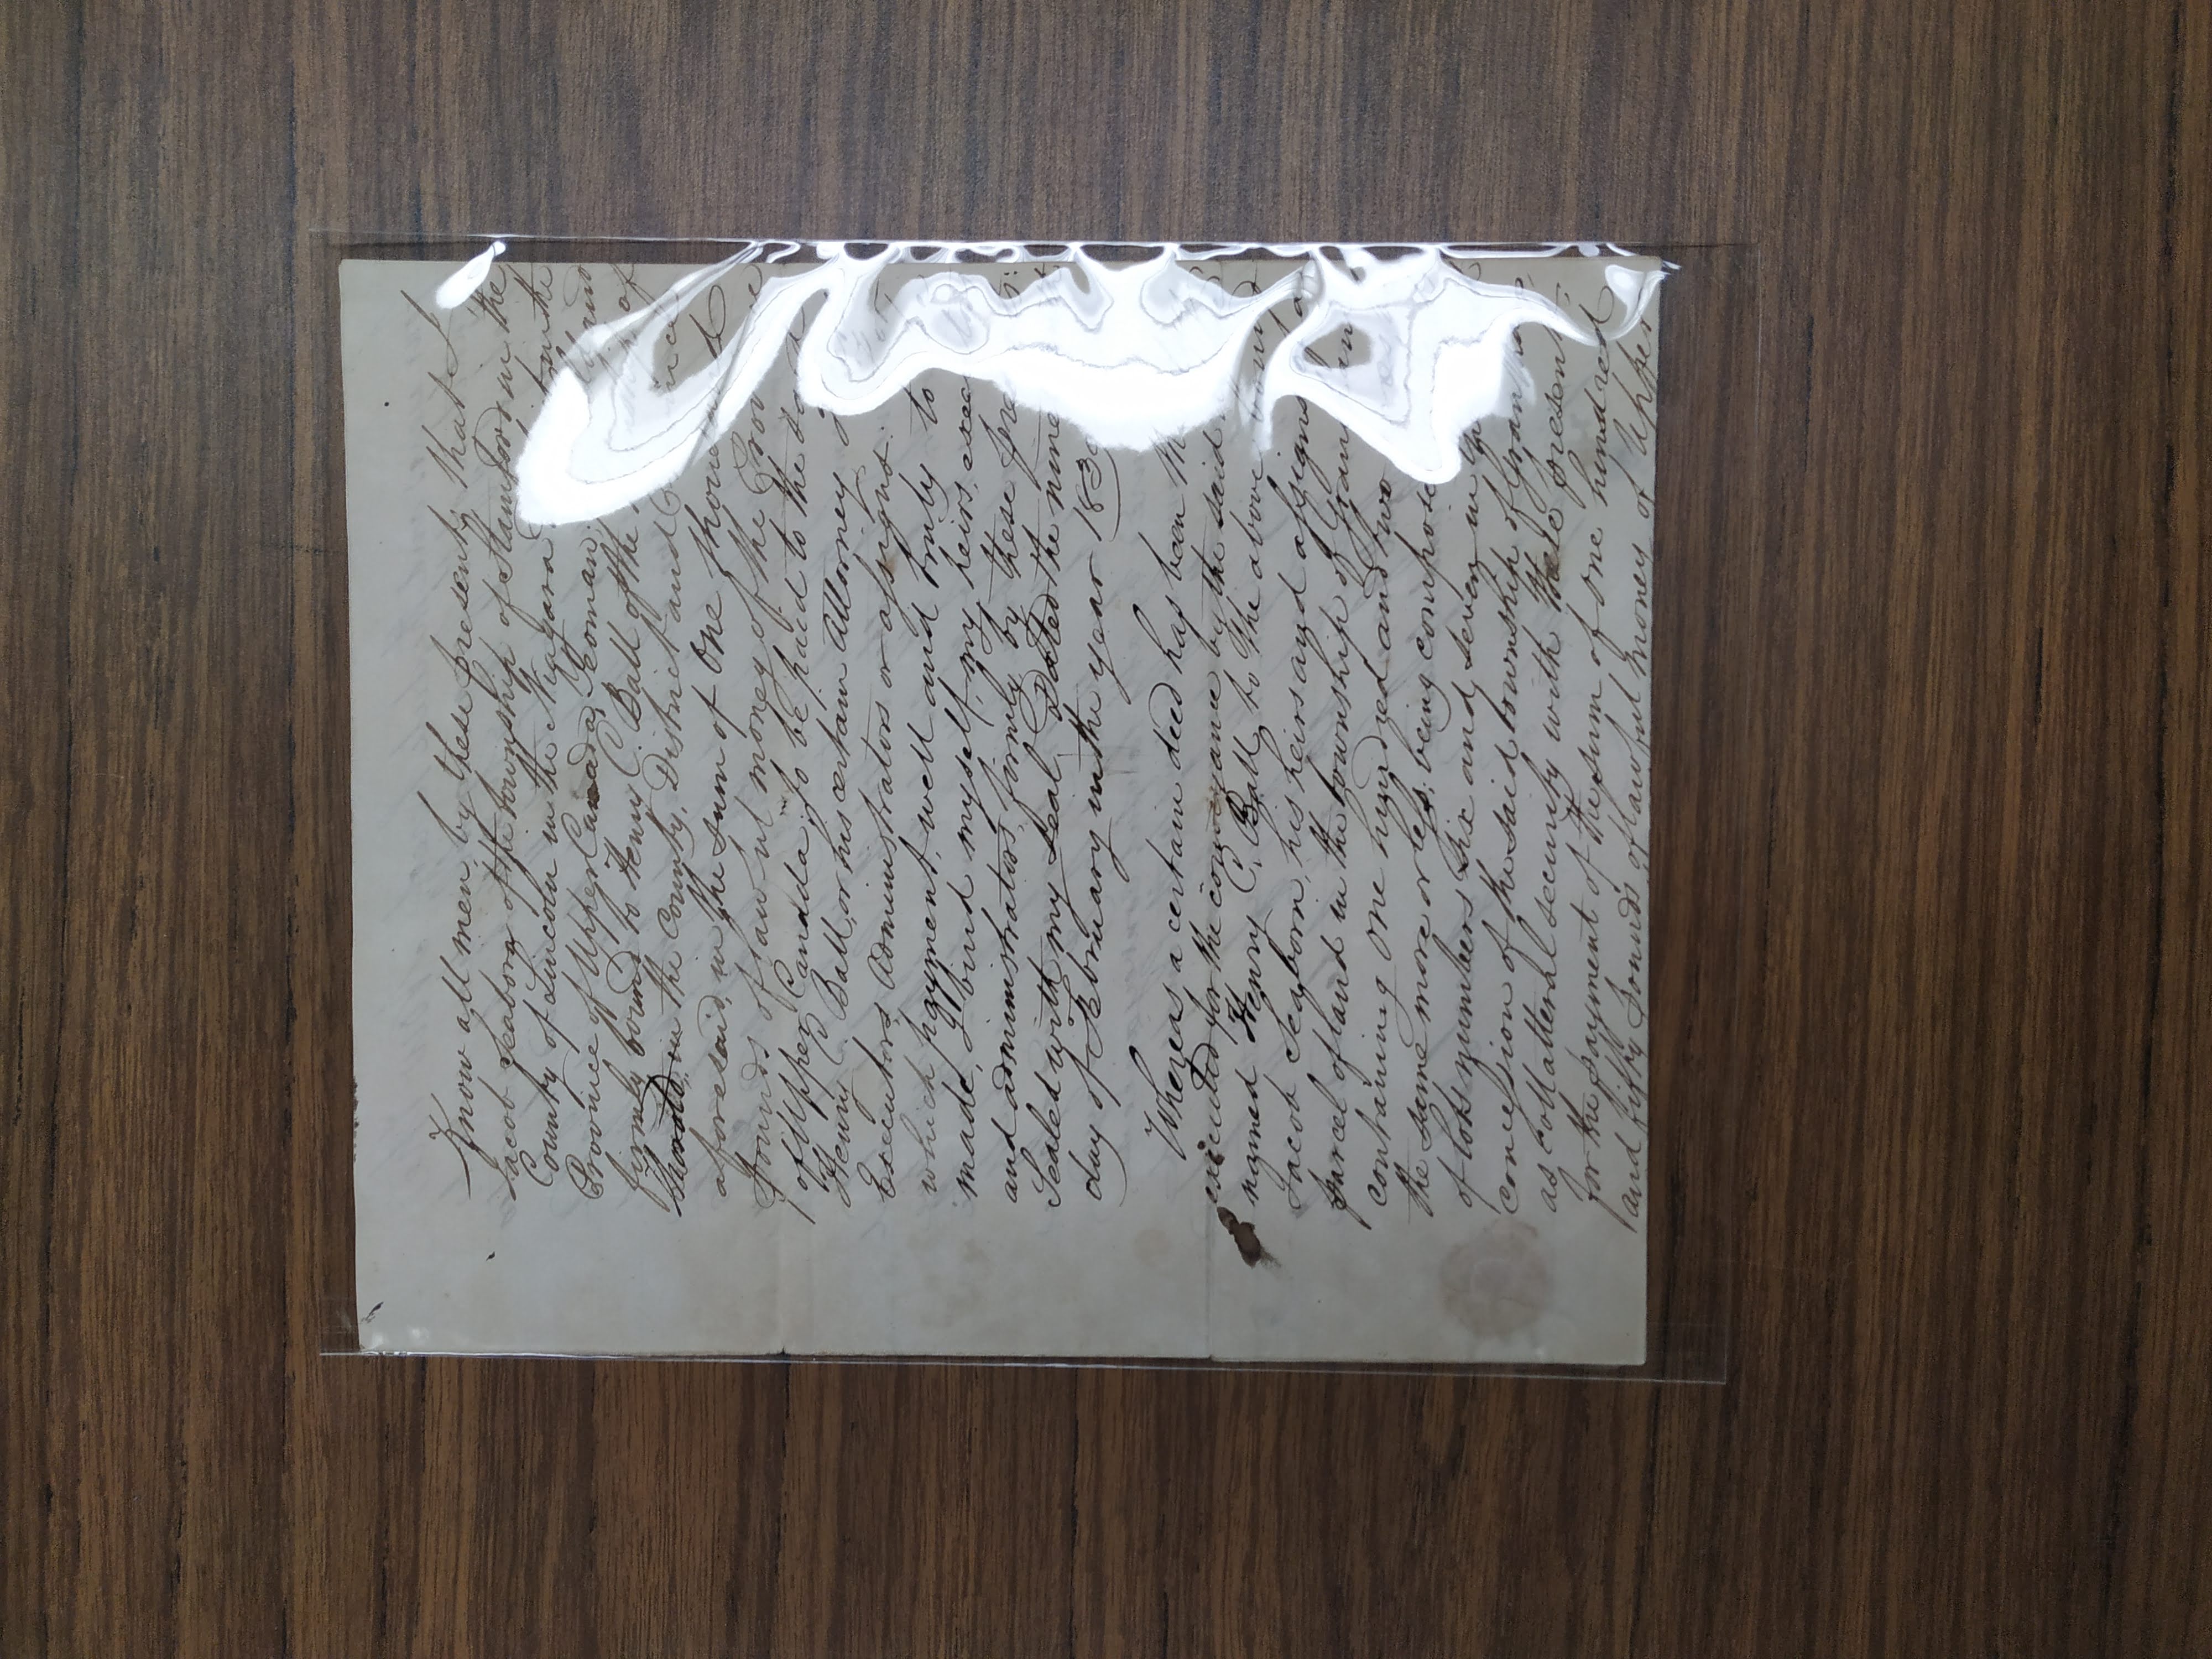 Know all men by these presents that I
Jacob Seaborn of the township of Stamford in the
County of Lincoln in the Niagara in the
Province of Upper Canada, Yeoman; and
firmly bound to Henry C. Ball of the of
Thorold, in the County, District and
aforesaid, in the sum of One thousand
pounds of lawful money of the
of Upper Canada; to be paid to the said
Henry C. Ball, or his certain Attorney
Executors, Administrators or assigns:
which payment, well and truly to
made, I bind myself, my heirs,
and administrators, firmly by these
Sealed with my Seal. Dated the
day of February in the year 1839
Whereas a certain deed has been
executed for the conveyance by the said
named Henry C. Ball, to the above bound
Jacob Seaborn, his heirs and assigns
parcel of land in the township of
containing One hundred and two
the same more or less; being
of lots numbers six and seven in
concession of the said township of Grantham
as collatteral security with these presents
for the payment of the sum of One hundred
and fifty pounds of lawful money of Upper